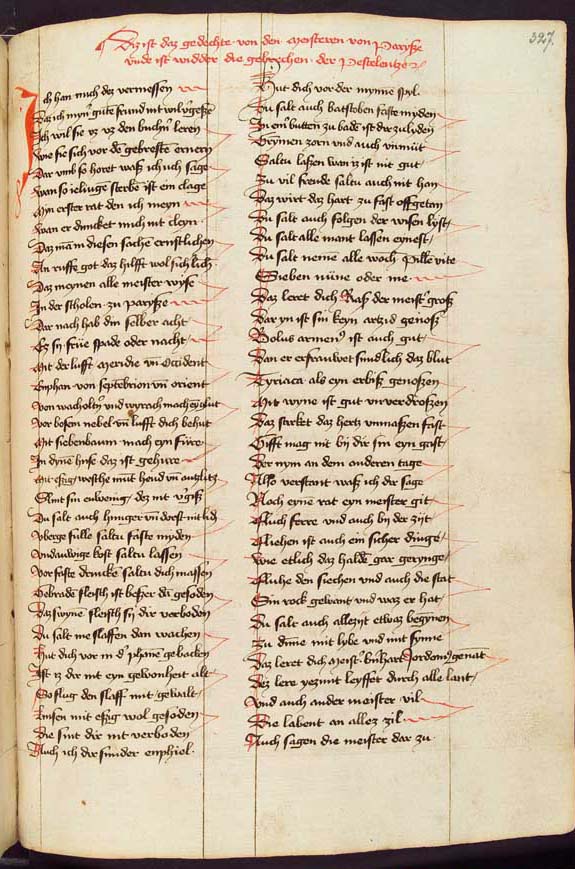 327
Diz ist daz gedechte von den meisteren von Paryße
vnde ist widder die gebrechen der Pestelentze
Ich han mich dez vermessen
Daz ich myn gute frund nit wil vergeße
Ich wil sie vz vz den buchn leren
Wie sie sich vor dē gebreste ernern
Dar vmb so horet waß ich uch sage
Wan so ieliuge sterbē ist ein clage
Myn erster rat den ich meyn
Wan er duncket mich nit cleyn
Daz mā in diesen sache ernstlichen
An ruffe got daz hilfft wol sichlich
Daz meynen alle meister wyse
In der scholen zu paryße
Dar nach hab din selber acht
Ez sy frue spade oder nacht
Mit der lufft meridie vn̄ occident
Enphan von septebrion vn̄ orient
Von wacholtn̄ vnd wyrach mach ey glut
Vor bosen nebel vn̄ lufft dich behut
Mit siebenbaum mach eyn fure
In dynē huse daz ist gehure
Mit eßig wesche mit hend vn̄ antzlitz
Slint sin enwenig dez nit vgiß
Du salt auch hunger vn̄ dorst nit lid
Vberge fulle saltu faste myden
Vndauwige kost saltu lassen
Vor faste drincke saltu dich massen
Gebraden fleisch ist beßer dā gesoden
Daz swynē fleisch sy dir verboden
Du salt me slaffen dan wachen
Hut dich vor in d phane gebacken
Ist ez dir nit eyn gewonheit alt
So flug den slaff mit gewalt
Linsen mit eßig wol gesoden
Die sint dir nit verboden
Auch ich dir sunder enphiel
Hut dich vor der mynne spyl
Du salt auch batstoben faste myden
In eyn butten zu badē ist dir zu lyden
Grymen zorn vnd auch vnmut
Saltu laßen wan iz ist nit gut
Zu vil freude saltu auch nit han
Daz wirt daz hart zu fast offgetan
Du salt auch folgen der wisen lyst
Du salt alle mant lassen eynest
Du salt nemē alle woch pille vite
Sieben nūne oder me
Daz leret dich Raß der meist groß
Dar yn ist sin keyn artzid genoß
Bolus armen ist auch gut
Dan er erfrauwet sundlich daz blut
Tyriaca als eyn erbiß genoßen
Mit wyne ist gut vnverdroßen
Daz stecket daz hertz vnmaßen fast
Gifft mag nit by dir sin eyn gast
Der nym an dem anderen tage
Also verstant waß ich dir sage
Noch eynē rat eyn meister git
Fluch ferre vnd auch by der zyt
Fliehen ist auch ein sicher dinge
Wie etlich daz haldē gar gerynge
Fluhe den siechen vnd auch die stat
Sin rock gewant vnd waz er hat
Du salt auch allezyt etwaz begynen
Zu dūne mit lybe vnd mit synne
Daz leret dich meist bnhart Jordan genāt
Dez lere yezunt leysset durch alle lant
Vnd auch ander meister vil
Die labent an allez zil
Auch sagen die meister dar zu